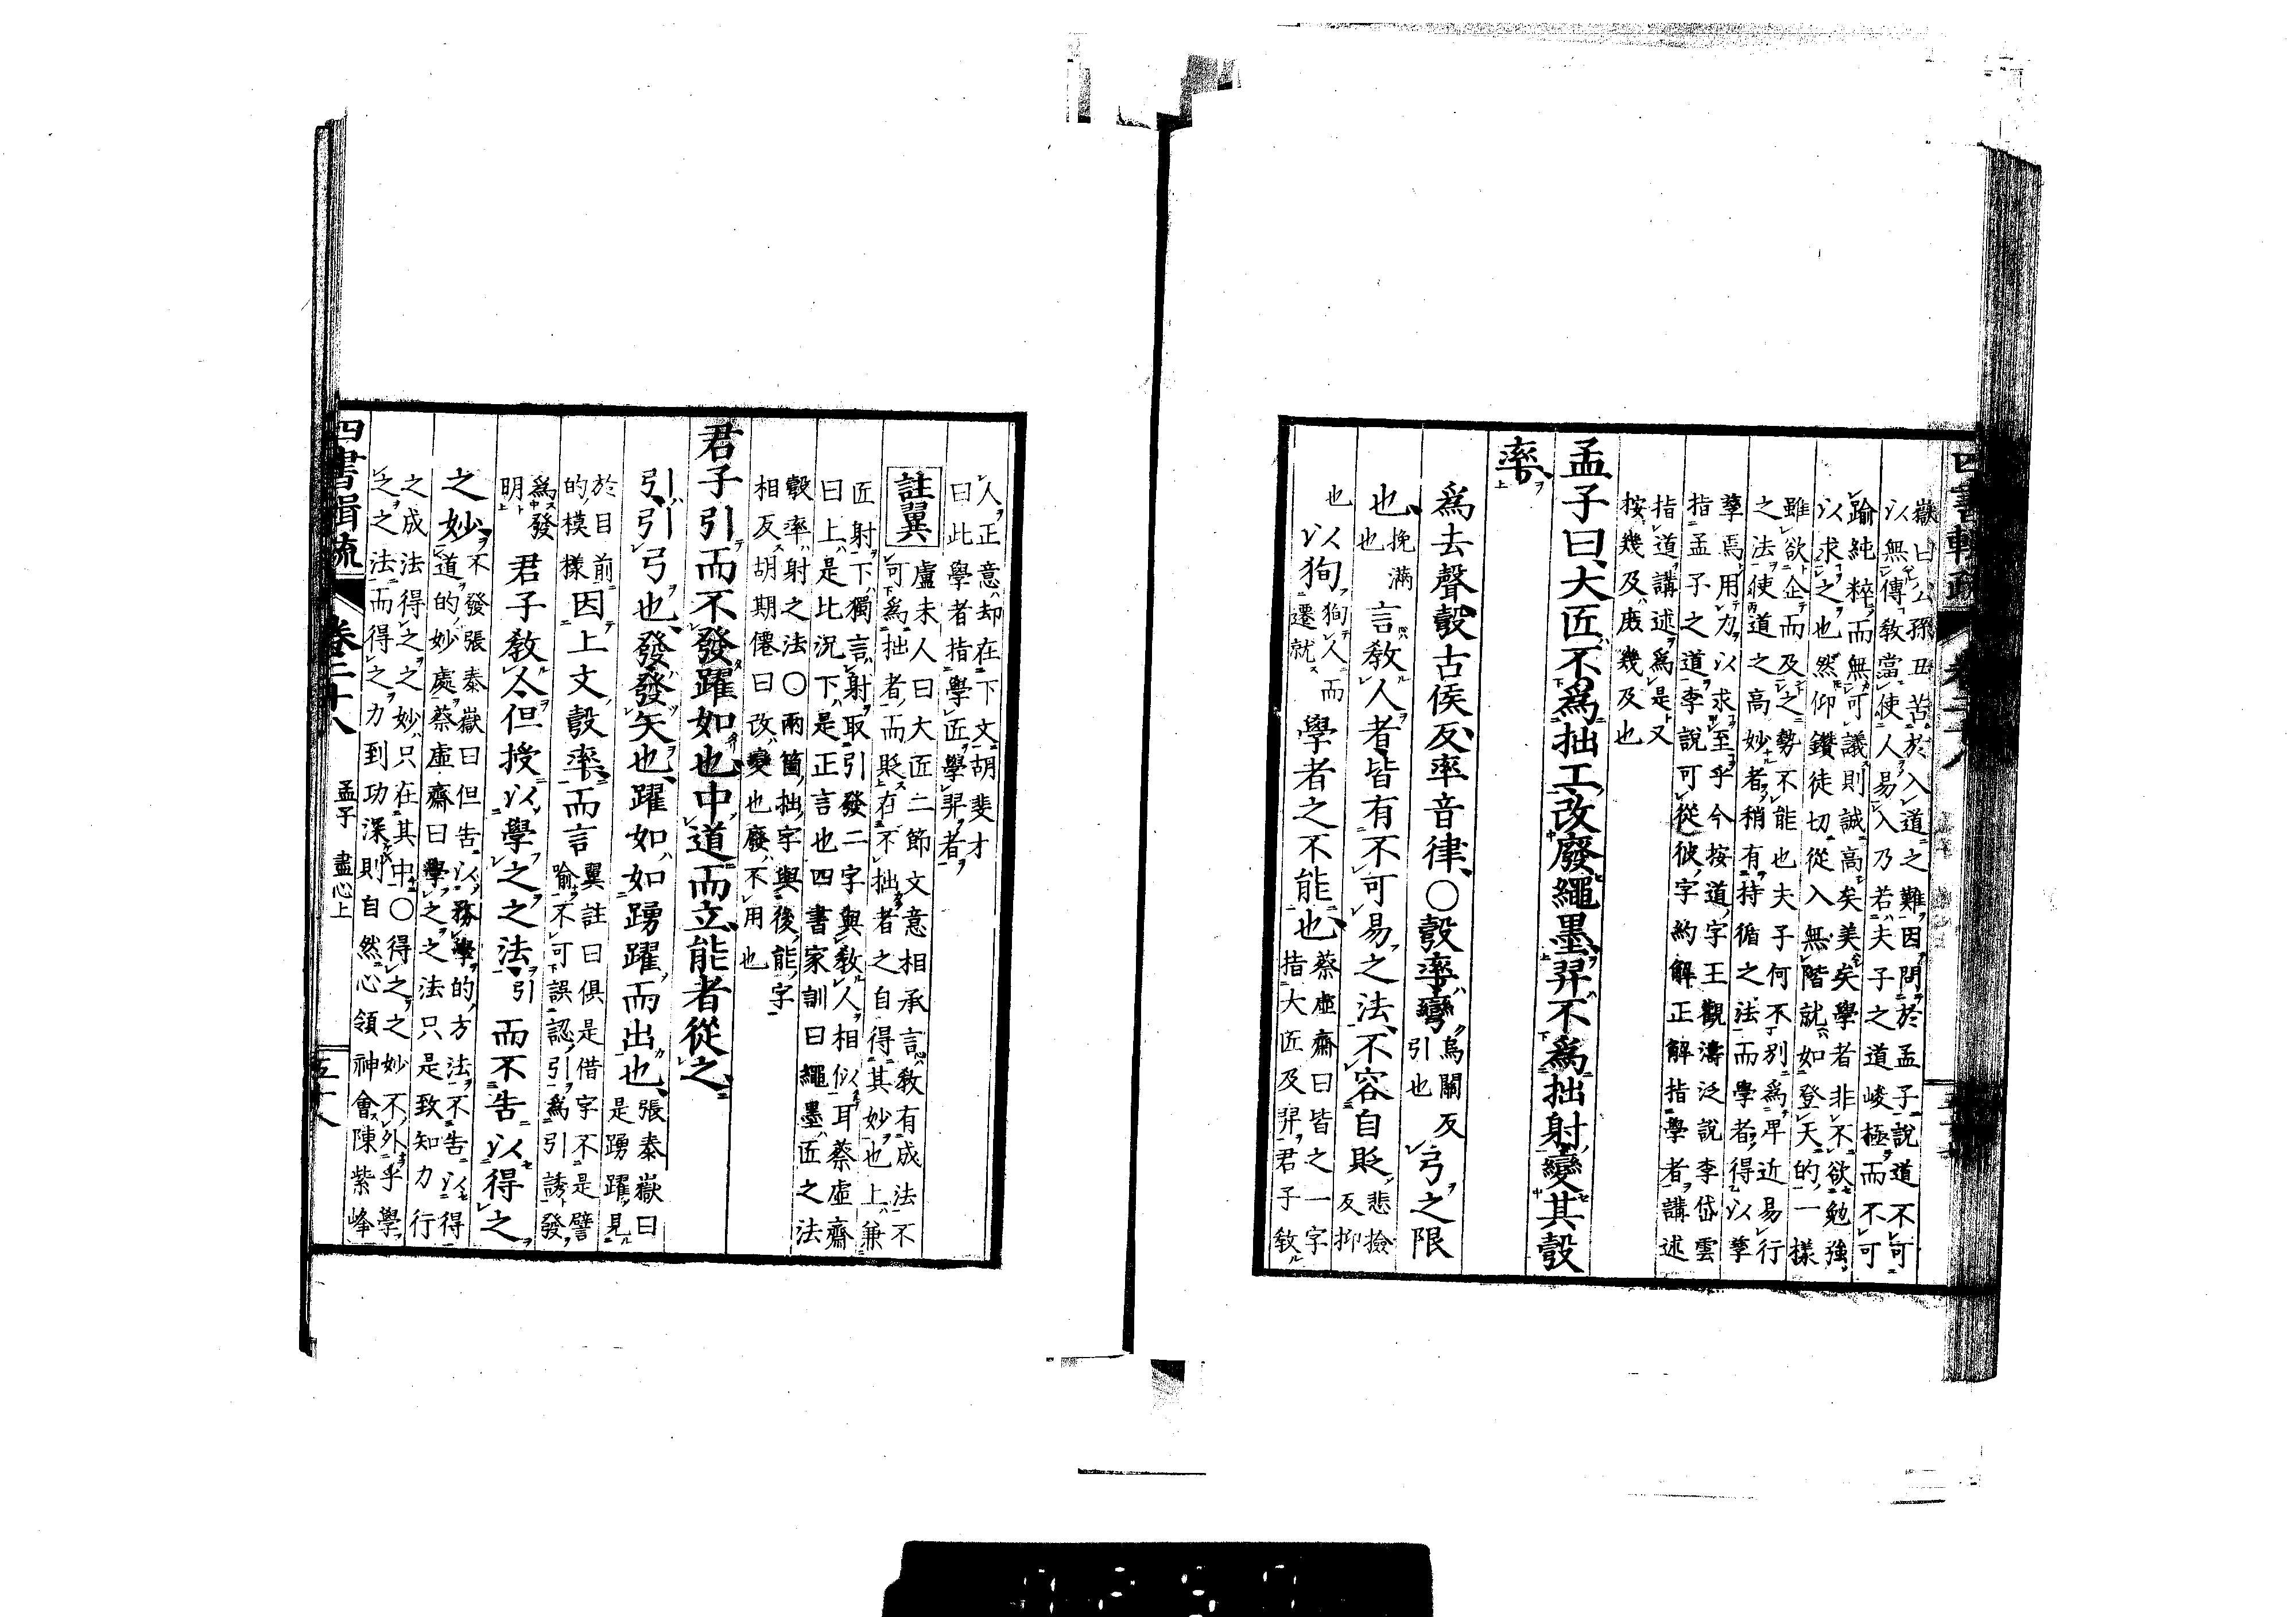 四書輯疏 卷二十八
嶽曰公孫丑苦於入道之難因問於孟子說道不可
以無傳教當使人易入乃若夫子之道峻極而不可
踰純粹而無可議則誠高矣美矣學者非不欲勉強
以求之也然仰鑽徒切從入無階就如登天的一樣
雖欲企而及之勢不能也夫子何不別爲卑近易行
之法使道之高妙者稍有持循之法而學者得以孳
孳焉用力以求至乎今按道字王觀濤泛說李岱雲
指孟子之道李說可從彼字約解正解指學者講述
指道講述爲是又
按幾及庶幾及也
孟子曰大匠不爲拙工改廢繩墨羿不爲拙射變其彀
率
爲去聲彀古侯反率音律〇彀率彎烏關反引也弓之限
也挽滿也言教人者皆有不可易之法不容自貶悲撿反抑
也以狥狥人而遷就學者之不能也蔡虛齋曰皆之一字指大匠及羿君子敎
人正意却在下文胡斐才
曰此學者指學匠學羿者
註翼盧未人曰大匠二節文意相承言敎有成法不
可爲拙者而貶有不拙者之自得其妙也上兼
匠射下獨言射取引發二字與敎人相似耳蔡虛齋
曰上是比況下是正言也四書家訓曰繩墨匠之法
彀率射之法〇兩箇拙字與後能字
相反胡期僊曰改變也廢不用也
君子引而不發躍如也中道而立能者從之
引引弓也發發矢也躍如如踴躍而出也張秦嶽曰是踴躍見
於目前的模樣因上文彀率而言翼註曰俱是借字不是譬喻不可誤認引爲引誘發
爲發明君子敎人但授以學之之法引而不告以得之
之妙不發張秦嶽曰但告以務學的方法不告以得
道的妙處蔡虛齋曰學之之法只是致知力行
之成法得之之妙只在其中〇得之之妙不外乎學
之之法而得之力到功深則自然心領神會陳紫峰
四書輯疏 卷二十八 孟子 盡心上 五十八